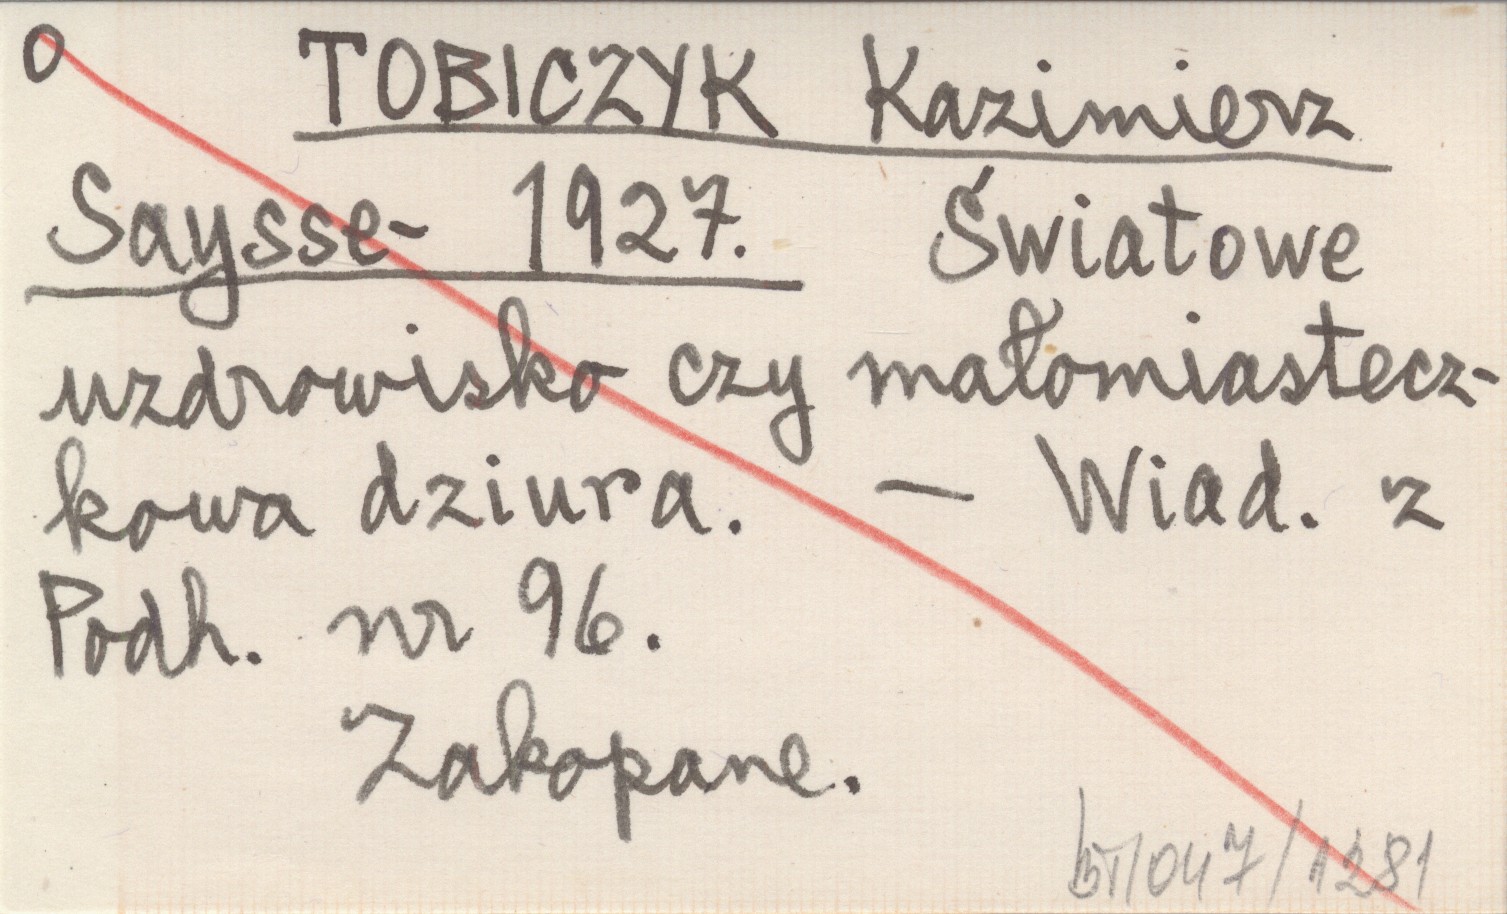 O TOBICZYK Kazimierz
Saysse- 1927. Światowe
uzdrowisko czy małomiastecz-
kowa dziura. — Wiad. z
Podh. nr 96.
Zakopane.
047/1281